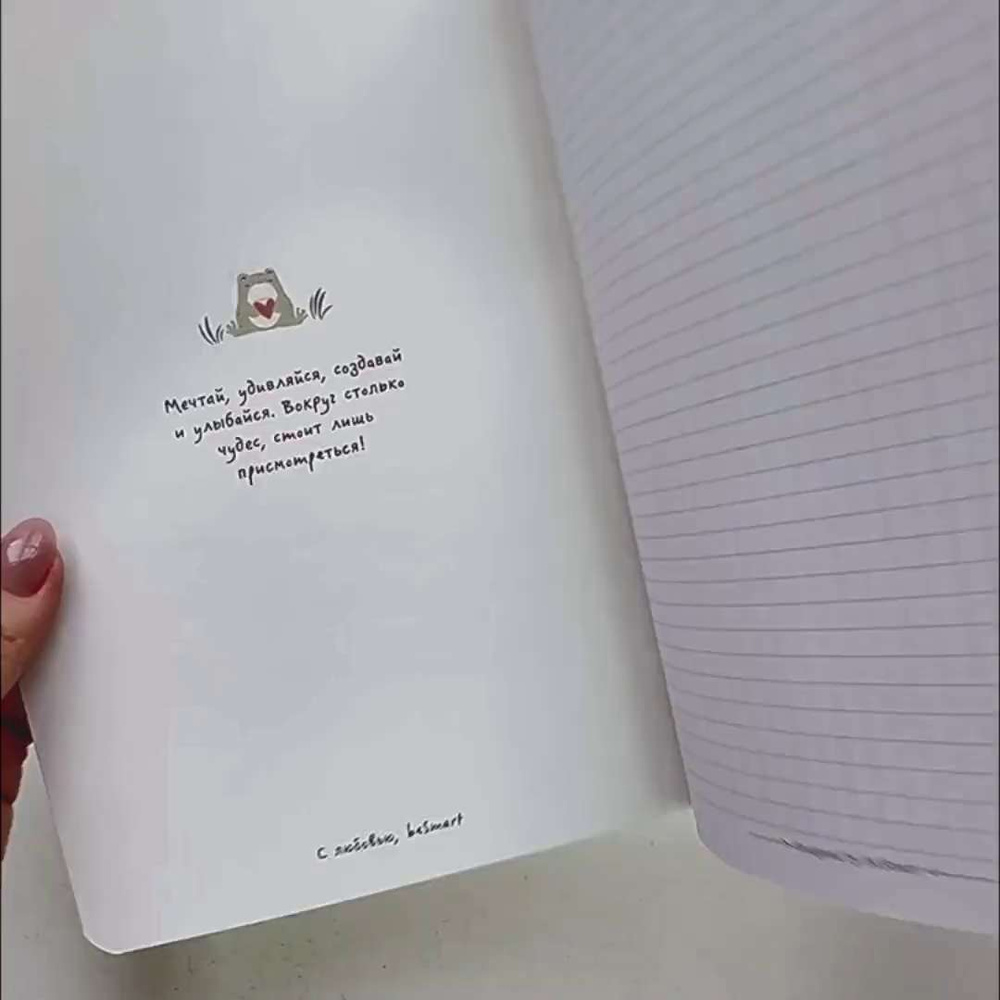 Мечтай, удивляйся, создавай
и улыбайся. Вокруг столько
чудес, стоит лишь
присмотреться!
С любовью, beSmart